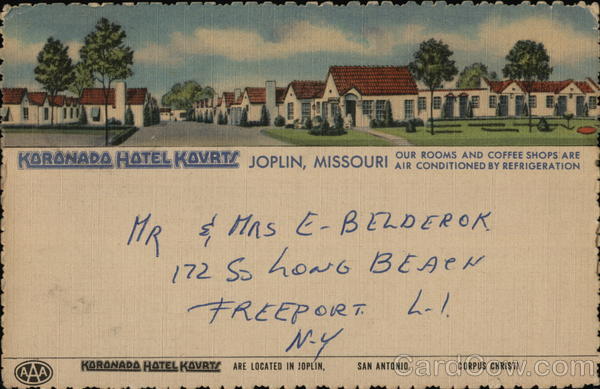 KORONADO HOTEL KOVRTS JOPLIN, MISSOURI OUR ROOMS AND COFFEE SHOPS ARE
AIR CONDITIONED BY REFRIGERATION
MR & MRS E-BELDEROK
172 SO LONG BEACH
FREEPORT. L-I.
N-Y
AAA KORONADO HOTEL KOVRTS ARE LOCATED IN JOPLIN, SAN ANTONIO, CORPUS CHRISTI
CardCow.com